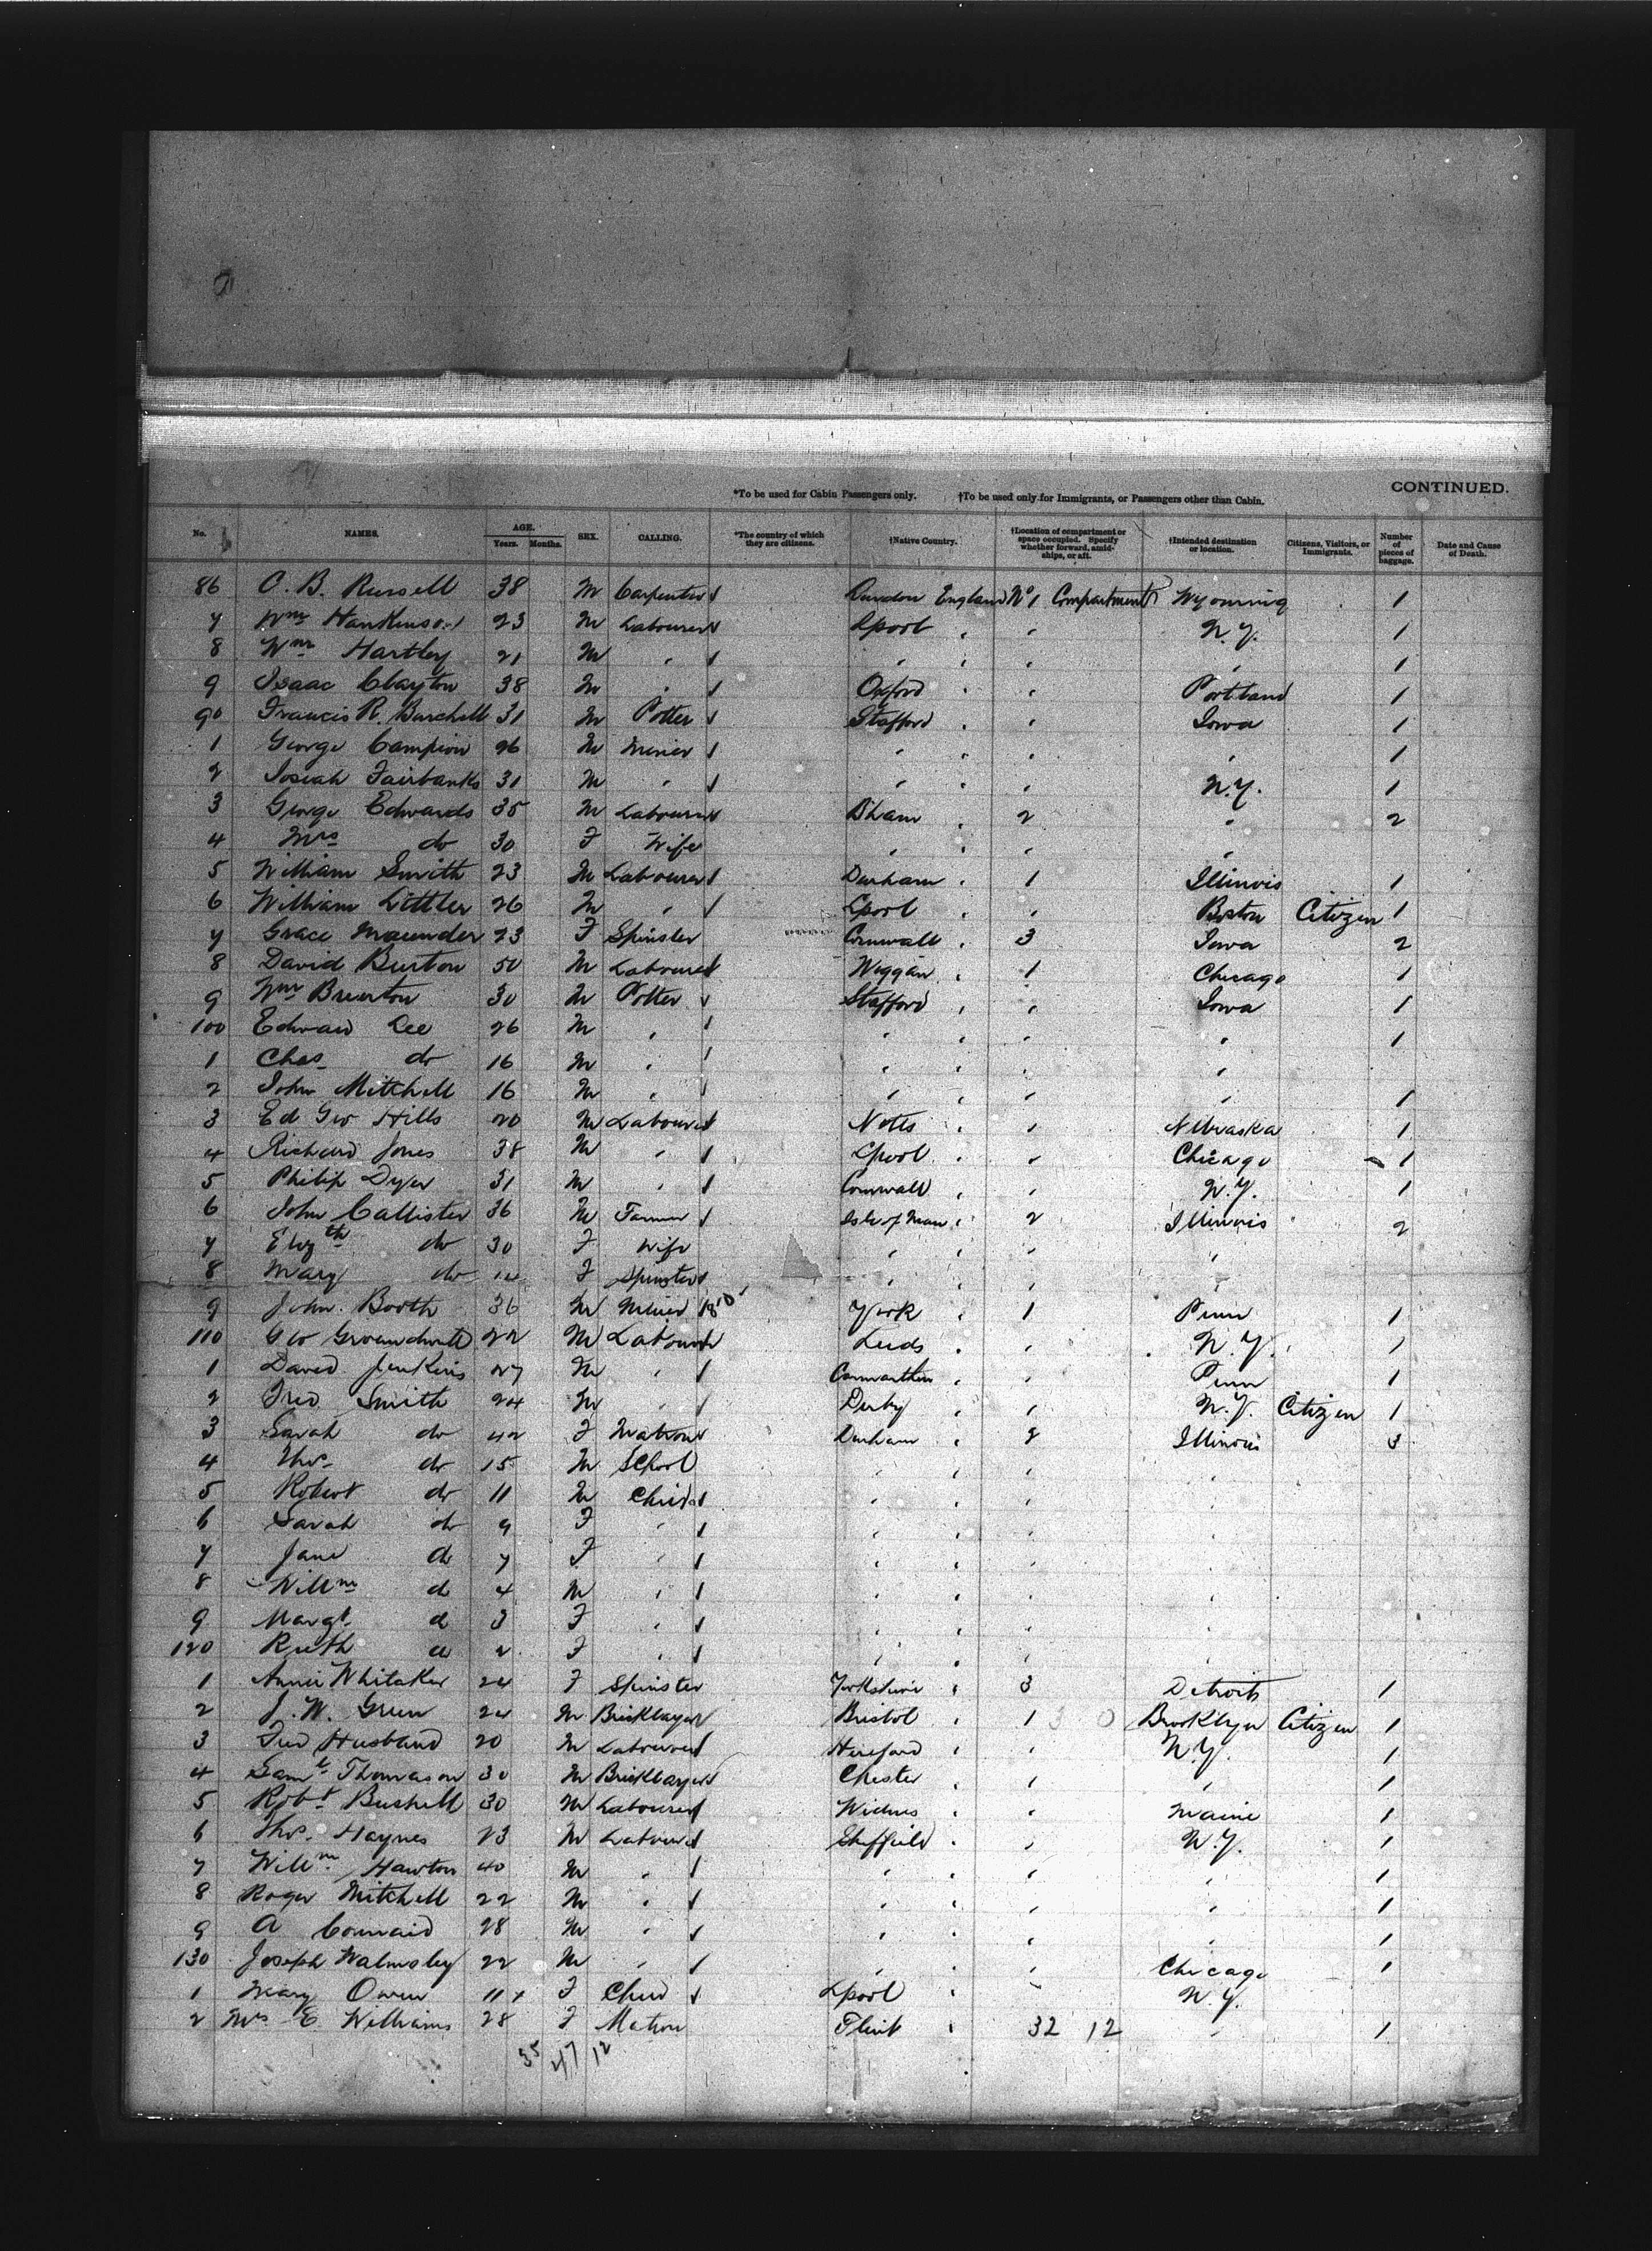 CONTINUED.
*To be used for Cabin Passengers only. †To be used only for Immigrants, or Passengers other than Cabin.
No. NAMES. AGE. Years. Months. SEX. CALLING. *The country of which they are citizens. †Native Country. †Location of compartment or space occupied. Specify whether forward, amidships, or aft. †Intended destination or location. Citizens, Visitors, or Immigrants. Number of pieces of baggage. Date and Cause of Death.
86 C. B. Russell 38 M Carpenter London England No 1 Compartment Wyoming 1
7 Wm Hankinson 23 M Labourer Lpool " " N.Y. 1
8 Wm Hartley 21 M " " " " " 1
9 Isaac Clayton 38 M " Oxford " " Portland 1
90 Francis R. Burchell 31 M Potter Stafford " " Iowa 1
1 George Campion 26 M Miner " " " " 1
2 Josiah Fairbanks 31 M " " " " N.Y. 1
3 George Edwards 35 M Labourer Bham " 2 " 2
4 Mrs do 30 F Wife " " " "
5 William Smith 23 M Labourer Durham " 1 Illinois 1
6 William Littler 26 M " Lpool " " Boston Citizen 1
7 Grace Maunder 23 F Spinster Cornwall " 3 Iowa 2
8 David Burton 50 M Labourer Wiggan " 1 Chicago 1
9 Wm Bruerton 30 M Potter Stafford " " Iowa 1
100 Edward Lee 26 M " " " " " 1
1 Chas do 16 M " " " " "
2 John Mitchell 16 M " " " " " 1
3 Ed Geo Hills 20 M Labourer Notts " " Nebraska 1
4 Richard Jones 38 M " Lpool " " Chicago 1
5 Philip Dyer 31 M " Cornwall " " N.Y. 1
6 John Callister 36 M Farmer Isle of Man " 2 Illinois 2
7 Elizth do 30 F Wife " " " "
8 Mary do 14 F Spinster " " " "
9 John Booth 36 M Miner York " 1 Penn 1
110 Geo 22 M Labourer Leeds " " N.Y. 1
1 David Jenkins 27 M " Carmarthen " " Penn 1
2 Fred Smith 24 M " Derby " " N.Y. Citizen 1
3 Sarah do 42 F Matron Durham " 2 Illinois 3
4 Thos do 15 M School " " " "
5 Robert do 11 M Child " " " "
6 Sarah do 9 F " " " " "
7 Jane do 7 F " " " " "
8 Willm do 4 M " " " " "
9 Margt do 3 F " " " " "
120 Ruth do 2 F " " " " "
1 Annie Whitaker 24 F Spinster Yorkshire " 3 Detroit 1
2 J. W. Green 24 M Bricklayer Bristol " 1 3 0 Brooklyn Citizen 1
3 Fred Husband 20 M Labourer Hereford " " N.Y. 1
4 Saml Thomason 30 M Bricklayer Chester " " " 1
5 Robt Bushell 30 M Labourer Widnes " " Maine 1
6 Thos Haynes 23 M Labourer Sheffield " " N.Y. 1
7 Willm Hawton 40 M " " " " " 1
8 Roger Mitchell 22 M " " " " " 1
9 A 28 M " " " " " 1
130 Joseph Walmsley 22 M " " " " Chicago 1
1 Mary Owen 11 F Child Lpool " " N.Y.
2 Mrs E. Williams 28 F Matron Flint " 32 12 " 1
35 47 12